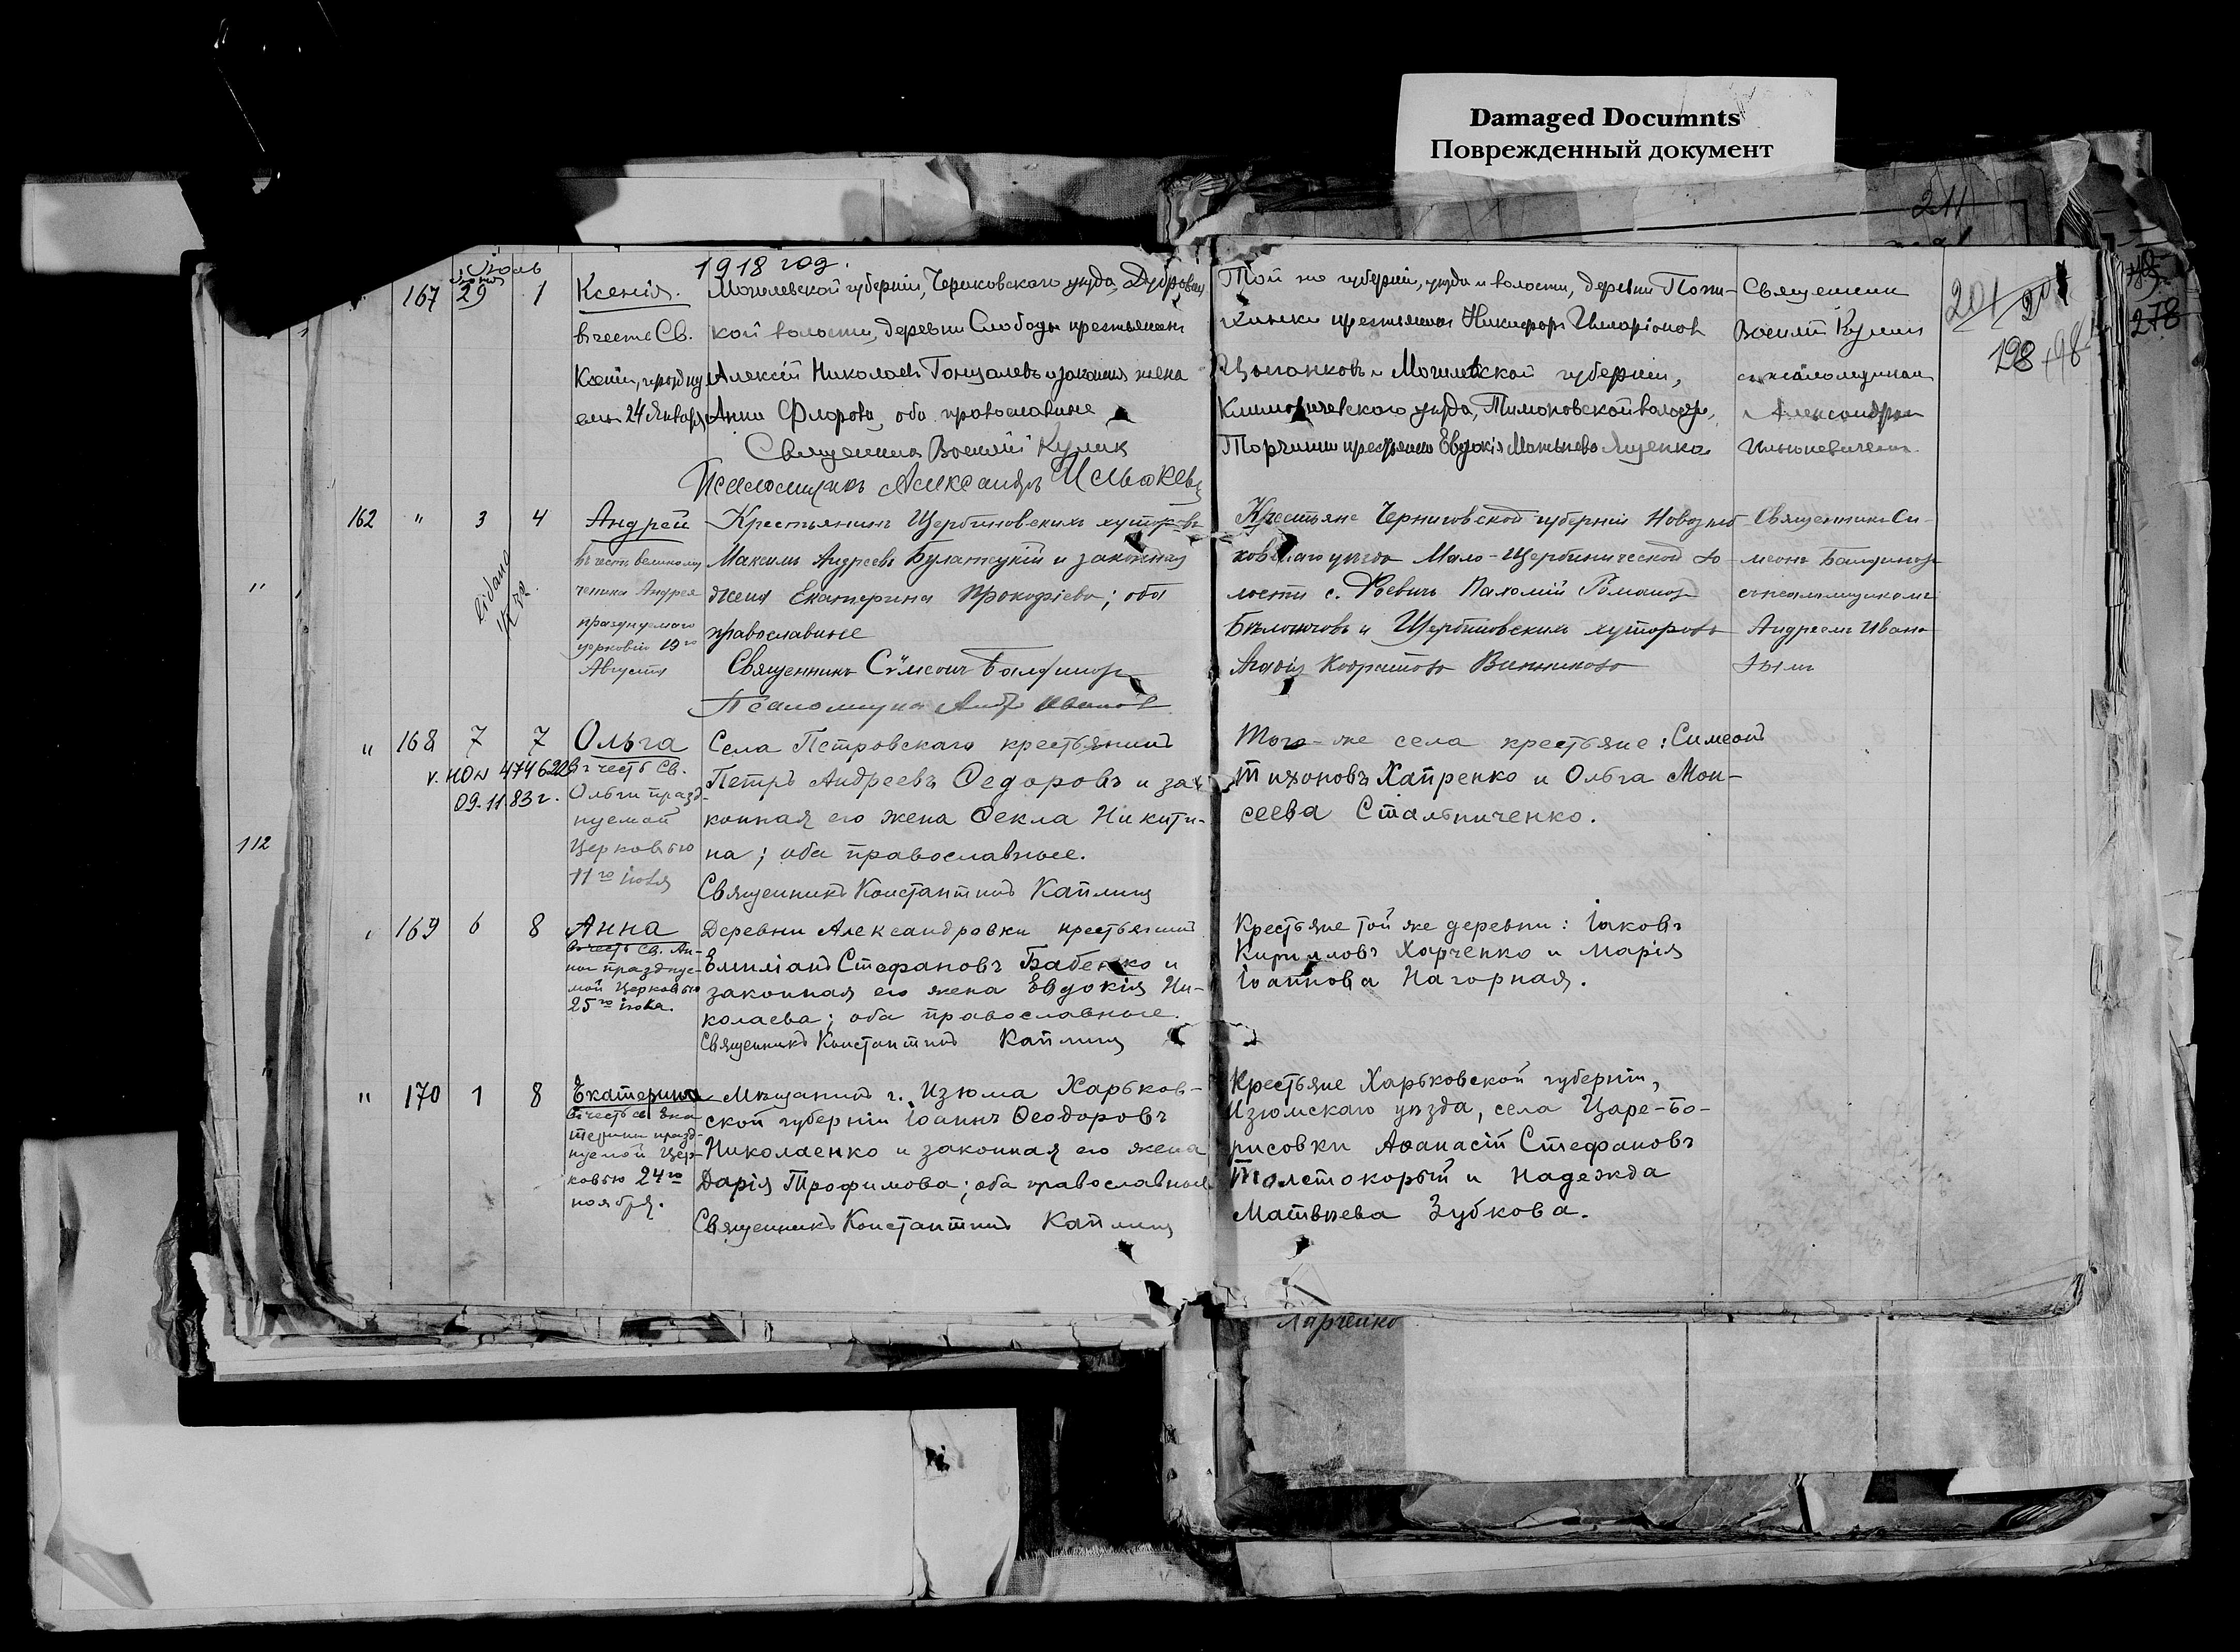 Damaged Documnts
Поврежденный документ
211
1918 год.
Іюль
167 29 1 Ксенія.
Могилевской губерніи, Чериковскаго уѣзда, Дубровс
въ честь Св.
кой волости, деревни Слободы крестьянинъ
Ксеніи, праздну
Алексій Николаевъ и законная жена
емой 24 Января
Анна Флорова, оба православные
Священникъ Василій Кулик
Псаломщикъ Александръ
Той же губерніи, уѣзда и волости, деревни
крестьянинъ Никифоръ Иларіоновъ
и Могилевской губерніи,
Климовичскаго уѣзда, Тимоновской волости,
крестьянка Евдокія Матвѣева Яценко
Священникъ
Василій Кулик
съ псаломщикомъ
Александромъ
201
198
278
162 " 3 4 Андрей
въ честь велико му
ченика Андрея
празднуемаго
церковію 19го
Августа
Крестьянинъ Щербиновскихъ хуторовъ
Максимъ Андреевъ и законная
жена Екатерина Прокофіева; оба
православные
Священникъ Сѵмеонъ
Псаломщикъ Андр Иванов
Крестьяне Черниговской губерніи Новозыб
ковскаго уѣзда Мало-Щербинической во
лости с. Пахомій Романов
и Щербиновскихъ хуторовъ
Агафія Кодратова Винникова
Священникъ Си
меонъ
съ псаломщикомъ
Андреемъ Ивано
вымъ
" 168 7 7 Ольга
474622
09.11.83 г.
въ честь Св.
Ольги празд-
нуемой
Церковью
11го іюля
Села Петровскаго крестьянинъ
Петръ Андреевъ Ѳедоровъ и за-
конная его жена Ѳекла Никити-
на; оба православные.
Священникъ Константинъ Каплинъ
Того-же села крестьяне: Симеонъ
Тихоновъ Хапренко и Ольга Мои-
сеева Стальниченко.
112
169 6 8 Анна
въ честь Св. Ан-
ны празднуе-
мой Церковью
25го іюля.
Деревни Александровки крестьянинъ
Емиліанъ Стефановъ Бабенко и
законная его жена Евдокія Ни-
колаева; оба православные.
Священникъ Константинъ Каплинъ
Крестьяне той же деревни: Іаковъ
Кирилловъ Харченко и Марія
Іоаннова Нагорная.
" 170 1 8 Екатерина
въ честь св. Ека
терины празд-
нуемой Цер-
ковью 24го
ноября.
Мѣщанинъ г. Изюма Харьков-
ской губерніи Іоаннъ Ѳеодоровъ
Николаенко и законная его жена
Дарія Трофимова; оба православные
Священникъ Константинъ Каплинъ
Крестьяне Харьковской губерніи,
Изюмскаго уѣзда, села Царе-Бо-
рисовки Аѳанасій Стефановъ
Толстокорый и Надежда
Матвѣева Зубкова.
Ларченко